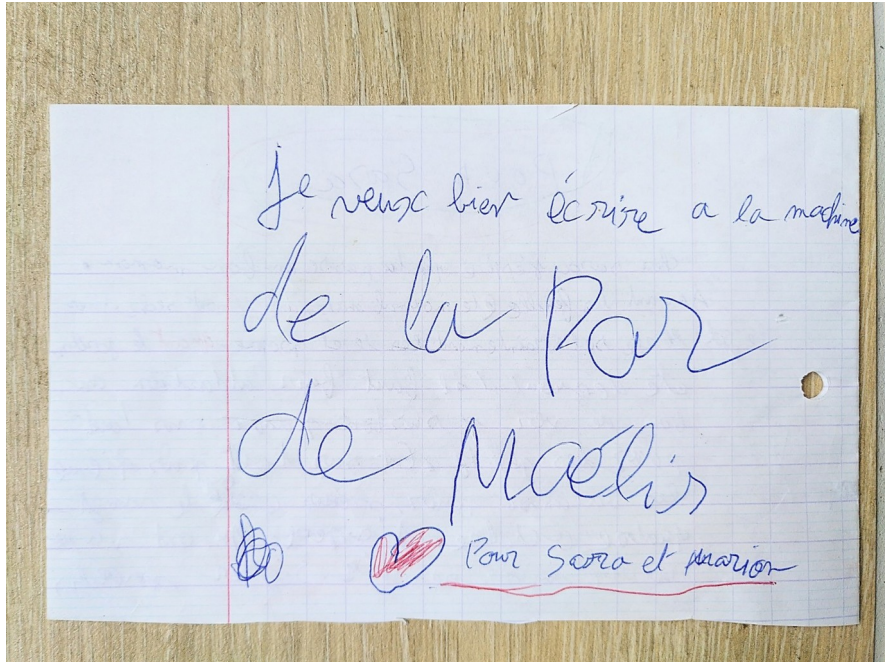 je veux bien écrire a la machine
de la Par
de Maëlis
Pour Sara et marion